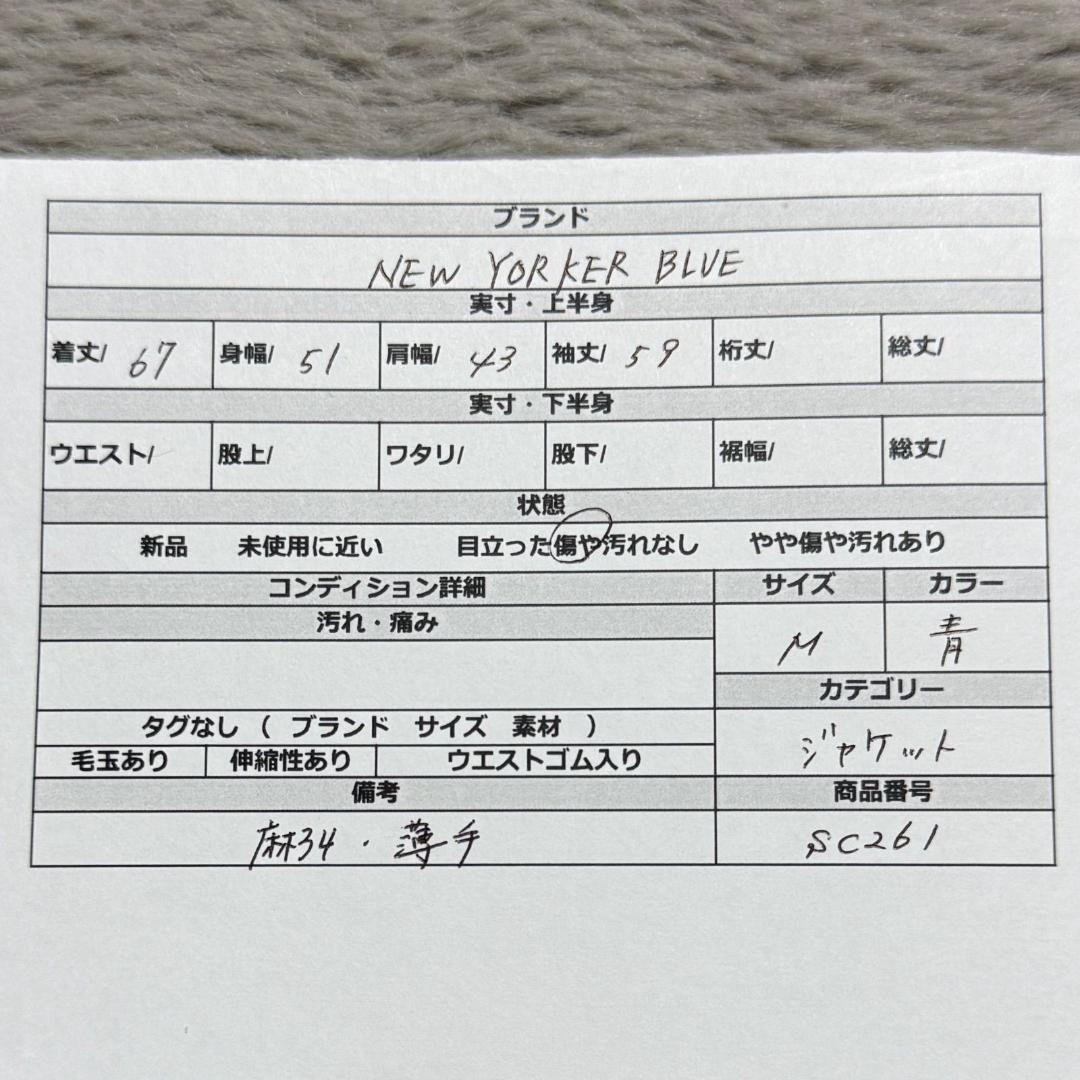 ブランド
NEW YORKER BLUE
実寸・上半身
着丈/ 67 身幅/ 51 肩幅/ 43 袖丈/ 59 裄丈/ 総丈/
実寸・下半身
ウエスト/ 股上/ ワタリ/ 股下/ 裾幅/ 総丈/
状態
新品 未使用に近い 目立った傷や汚れなし やや傷や汚れあり
コンディション詳細 サイズ カラー
汚れ・痛み
M 青
カテゴリー
タグなし ( ブランド サイズ 素材 )
ジャケット
毛玉あり 伸縮性あり ウエストゴム入り
備考 商品番号
麻34・薄手 SC261